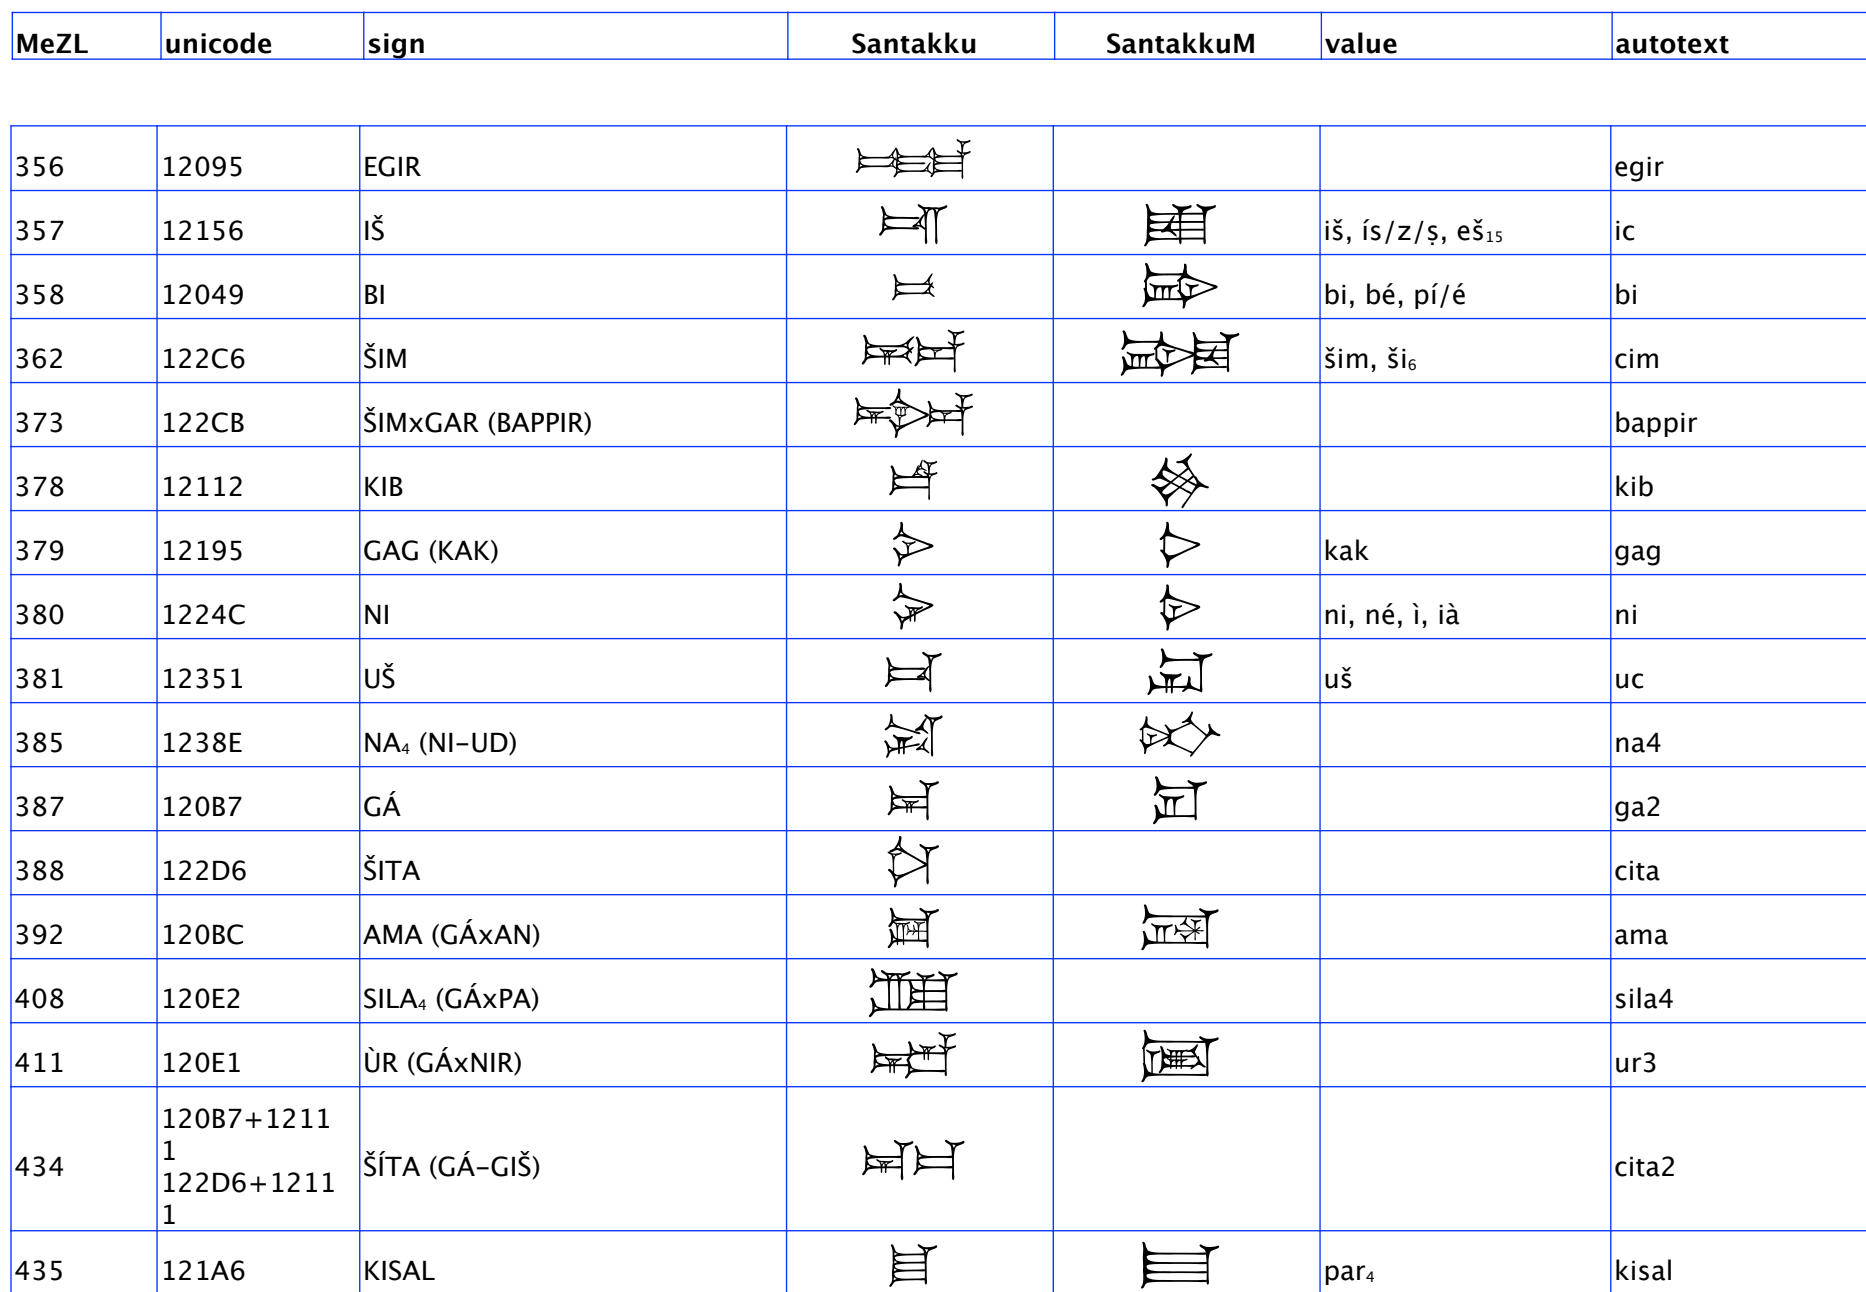 MeZL unicode sign Santakku SantakkuM value autotext
356 12095 EGIR egir
357 12156 IŠ iš, ís/z/ṣ, eš₁₅ ic
358 12049 BI bi, bé, pí/é bi
362 122C6 ŠIM šim, ši₆ cim
373 122CB ŠIMxGAR (BAPPIR) bappir
378 12112 KIB kib
379 12195 GAG (KAK) kak gag
380 1224C NI ni, né, ì, ià ni
381 12351 UŠ uš uc
385 1238E NA₄ (NI-UD) na4
387 120B7 GÁ ga2
388 122D6 ŠITA cita
392 120BC AMA (GÁxAN) ama
408 120E2 SILA₄ (GÁxPA) sila4
411 120E1 ÙR (GÁxNIR) ur3
120B7+1211
1
434 ŠÍTA (GÁ-GIŠ) cita2
122D6+1211
1
435 121A6 KISAL par₄ kisal